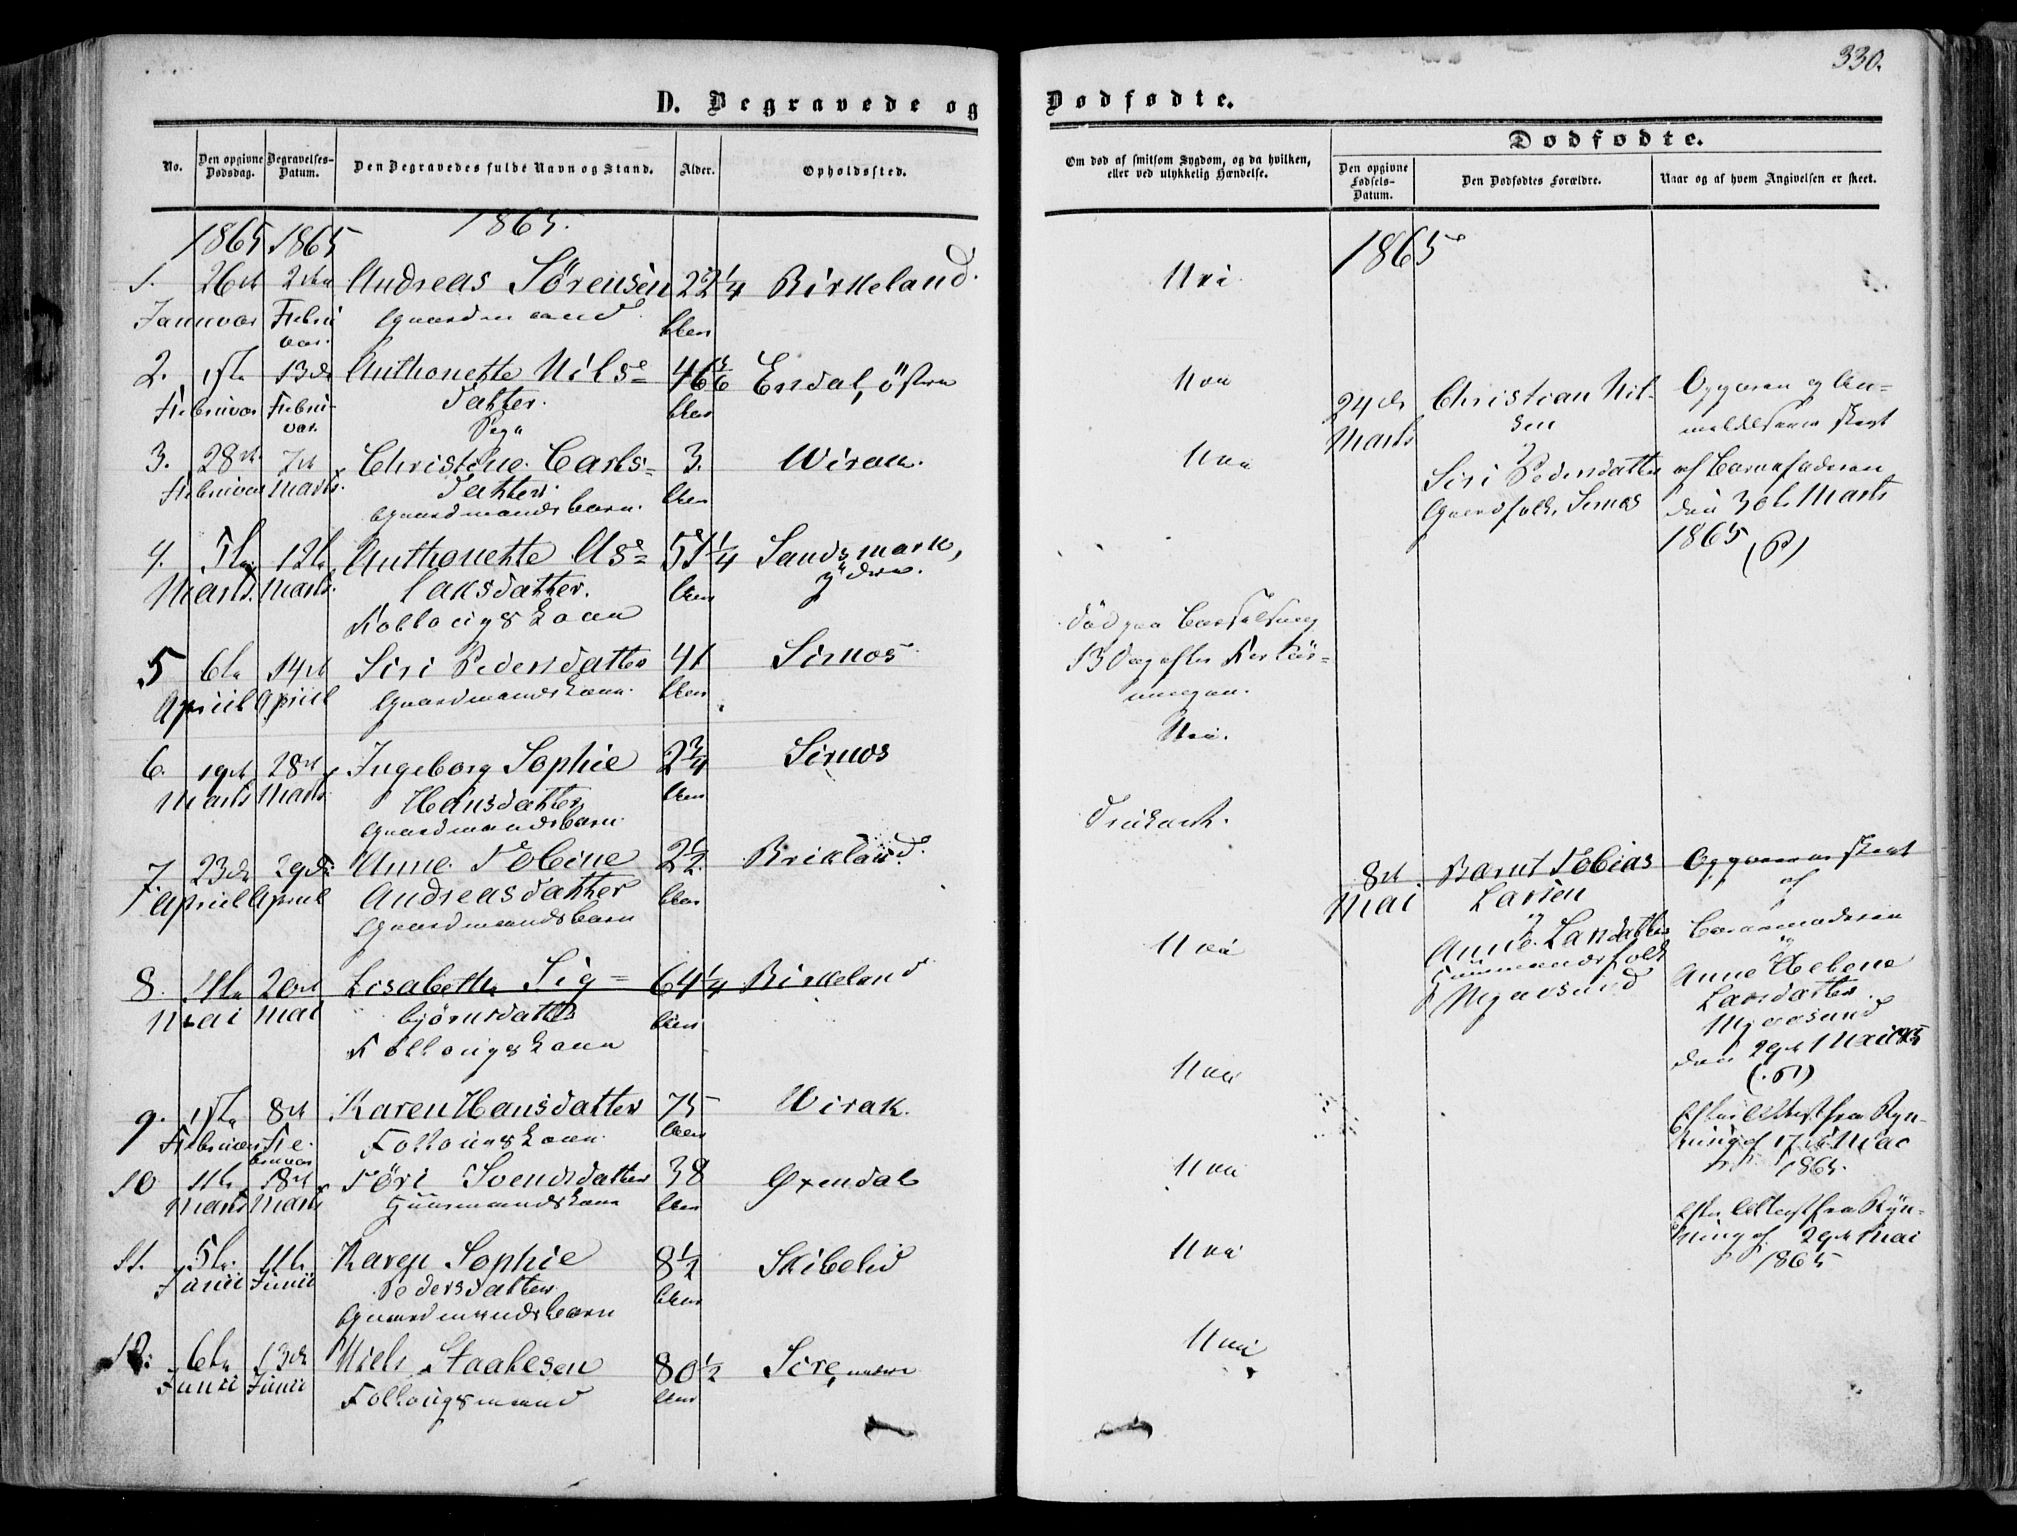 330.
D. Begravede og Dødfødte.
No.
Den opgivne Dødsdag.
Begravelses-Datum.
Den Begravedes fulde Navn og Stand.
Alder.
Opholdssted.
Om død af smitsom Sygdom, og da hvilken,
eller ved ulykkelig Hændelse.
Dødfødte.
Den opgivne Fødsels-Datum.
Den Dødfødtes Forældre.
Naar og af hvem Angivelsen er skeet.
1865 1865 1865.
1. 26de 2den Andreas Sörensen 22 1/4 Birkeland.
Januar Februar Gaardmand Aar
2. 1ste 13de Anthonette Nils= 46 5/6 Eisdal, östre
datter.
Februar Februar Pige Aar
3. 28de 7de Christine Carls= 3. Wirak.
datter.
Februar Marts. Gaardmandsbarn. Aar
4. 5te 12te Anthonette As= 51 1/4 Sandsmark,
laksdatter. ydre.
Marts. Marts. Follougskone Aar
5 6te 14de Siri Pedersdatter 41 Sirnos
April April Gaardmandskone. Aar
6. 19de 28de Ingeborg Sophie 2 3/4 Sirnos
Hansdatter
Marts Marts Gaardmandsbarn. Aar
7. 23de 29de Anne Tobine 2 1/2 Brikland.
April April Andreasdatter Aar
Gaardmandsbarn
8. 11te 20de Lisabeth Sig= 64 1/4 Birkeland
Mai Mai björnsdatter Aar
Follougskone
9. 1ste 8de Karen Hansdatter 75 Wirak.
Februar Februar Follougskone. Aar
10 11te 18de Töri Svendsdatter 38 Oxendal
Marts Marts Huusmandskone Aar
11. 5te 11te Karen Sophie 8 1/2 Skibelid
Junii Junii Pedersdatter Aar
Gaardmandsbarn
12: 6te 13de Niels Staalesen 80 1/2 Sire, nedre
Junii Junii Follougsmand Aar
Nei.
Nei
Nei
död paa Barselseng
13 Dag efter
Nei.
Nei
Nei
Nei
Nei
Nei
1865
24de Christian Nil-
Marts sen
og
Siri Pedersdatter
Gaardfolk Sirnos
Opgaven og An=
meldelsen skeet
af Barnefaderen
den 30te Marts
1865
8de Bernt Tobias
Mai Larsen
og
Anne Larsdatter
Huusmandsfolk
Mydsund
Opgaven skeet
af
Barnemoderen
Anne Helene
Larsdatter
den 29de Mai 65
Efter Attest fra Ryn-
ning af 17de Mai
1865.
Efter Attest fra Ryn-
ning af 29de Mai
1865